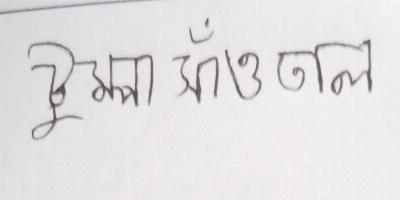 টুম্পা সাঁওতাল